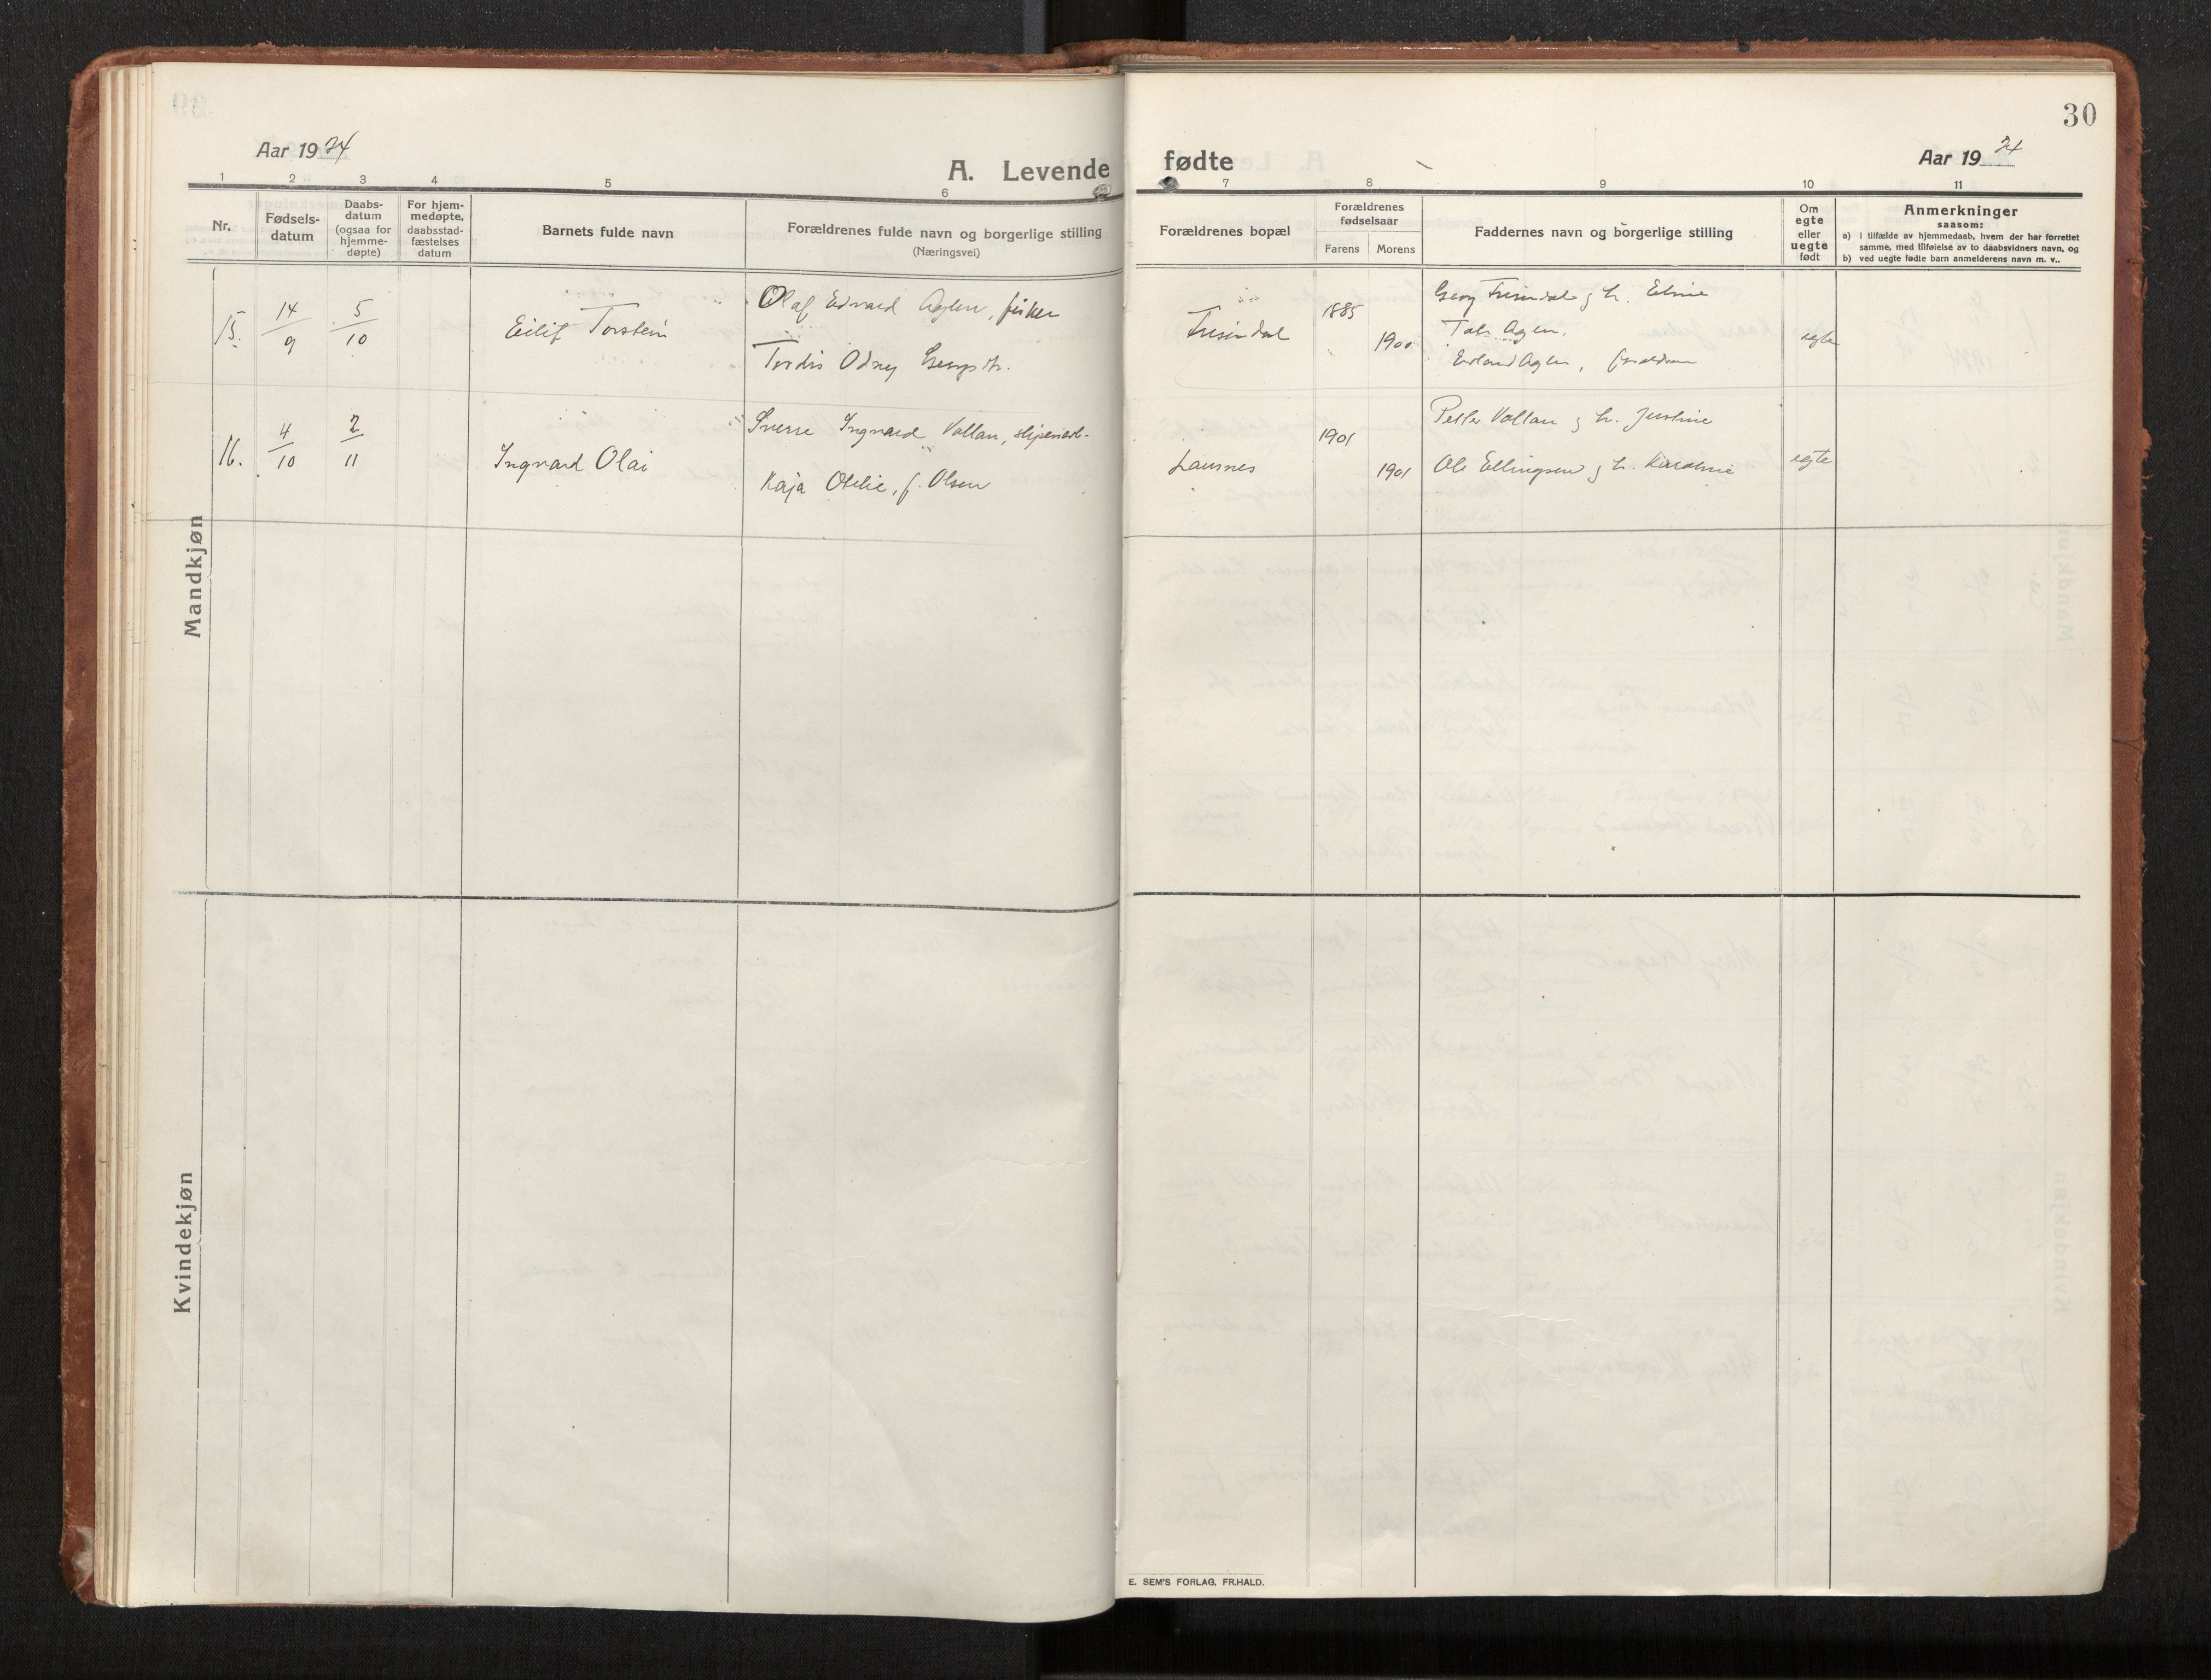 30
Aar 1924
A. Levende fødte
Aar 1924
1 2 3 4 5 6 7 8 9 10 11
Nr.
Fødsels-
datum
Daabs-
datum
(ogsaa for
hjemme-
døpte)
For hjem-
medøpte,
daabsstad-
fæstelses
datum
Barnets fulde navn
Forældrenes fulde navn og borgerlige stilling
(Næringsvei)
Forældrenes bopæl
Forældrenes
fødselsaar
Farens Morens
Faddernes navn og borgerlige stilling
Om
egte
eller
uegte
født
Anmerkninger
saasom:
a) i tilfælde av hjemmedaab, hvem der har forrettet
samme, med tilføielse av to daabsvidners navn, og
b) ved uegte fødte barn anmelderens navn m. v..
Mandkjøn
15. 14/9 5/10
Eilif Torstein
Olaf Edvard Aglen, fisker
Tordis Odny
1885
1900
Eline
Aglen, forældrene
egte
16. 4/10 2/11
Ingvard Olai
Sverre Ingvard Vollan,
Kaja Otelie, f. Olsen
Lausnes
1901
1901
Petter Vollan g h. Justine
Ole Ellingsen g h. Karoline
egte
Kvindekjøn
E. SEM'S FORLAG, FR.HALD.